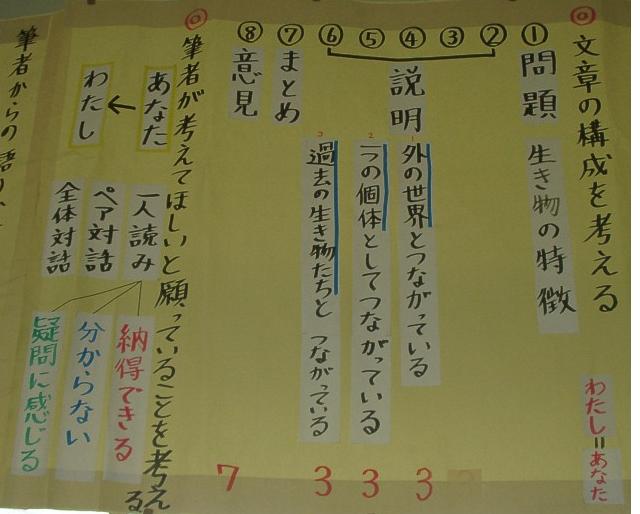 ◎文章の構成を考える
わたし＝あなた
①問題
生き物の特徴
②③④⑤⑥
説明
1
外の世界とつながっている
3
2
一つの個体としてつながっている
3
3
過去の生き物たちと つながっている
3
⑦まとめ
⑧意見
7
◎筆者が考えてほしいと願っていることを考える
あなた
←
わたし
一人読み
ペア対話
全体対話
納得できる
分からない
疑問に感じる
筆者からの語り